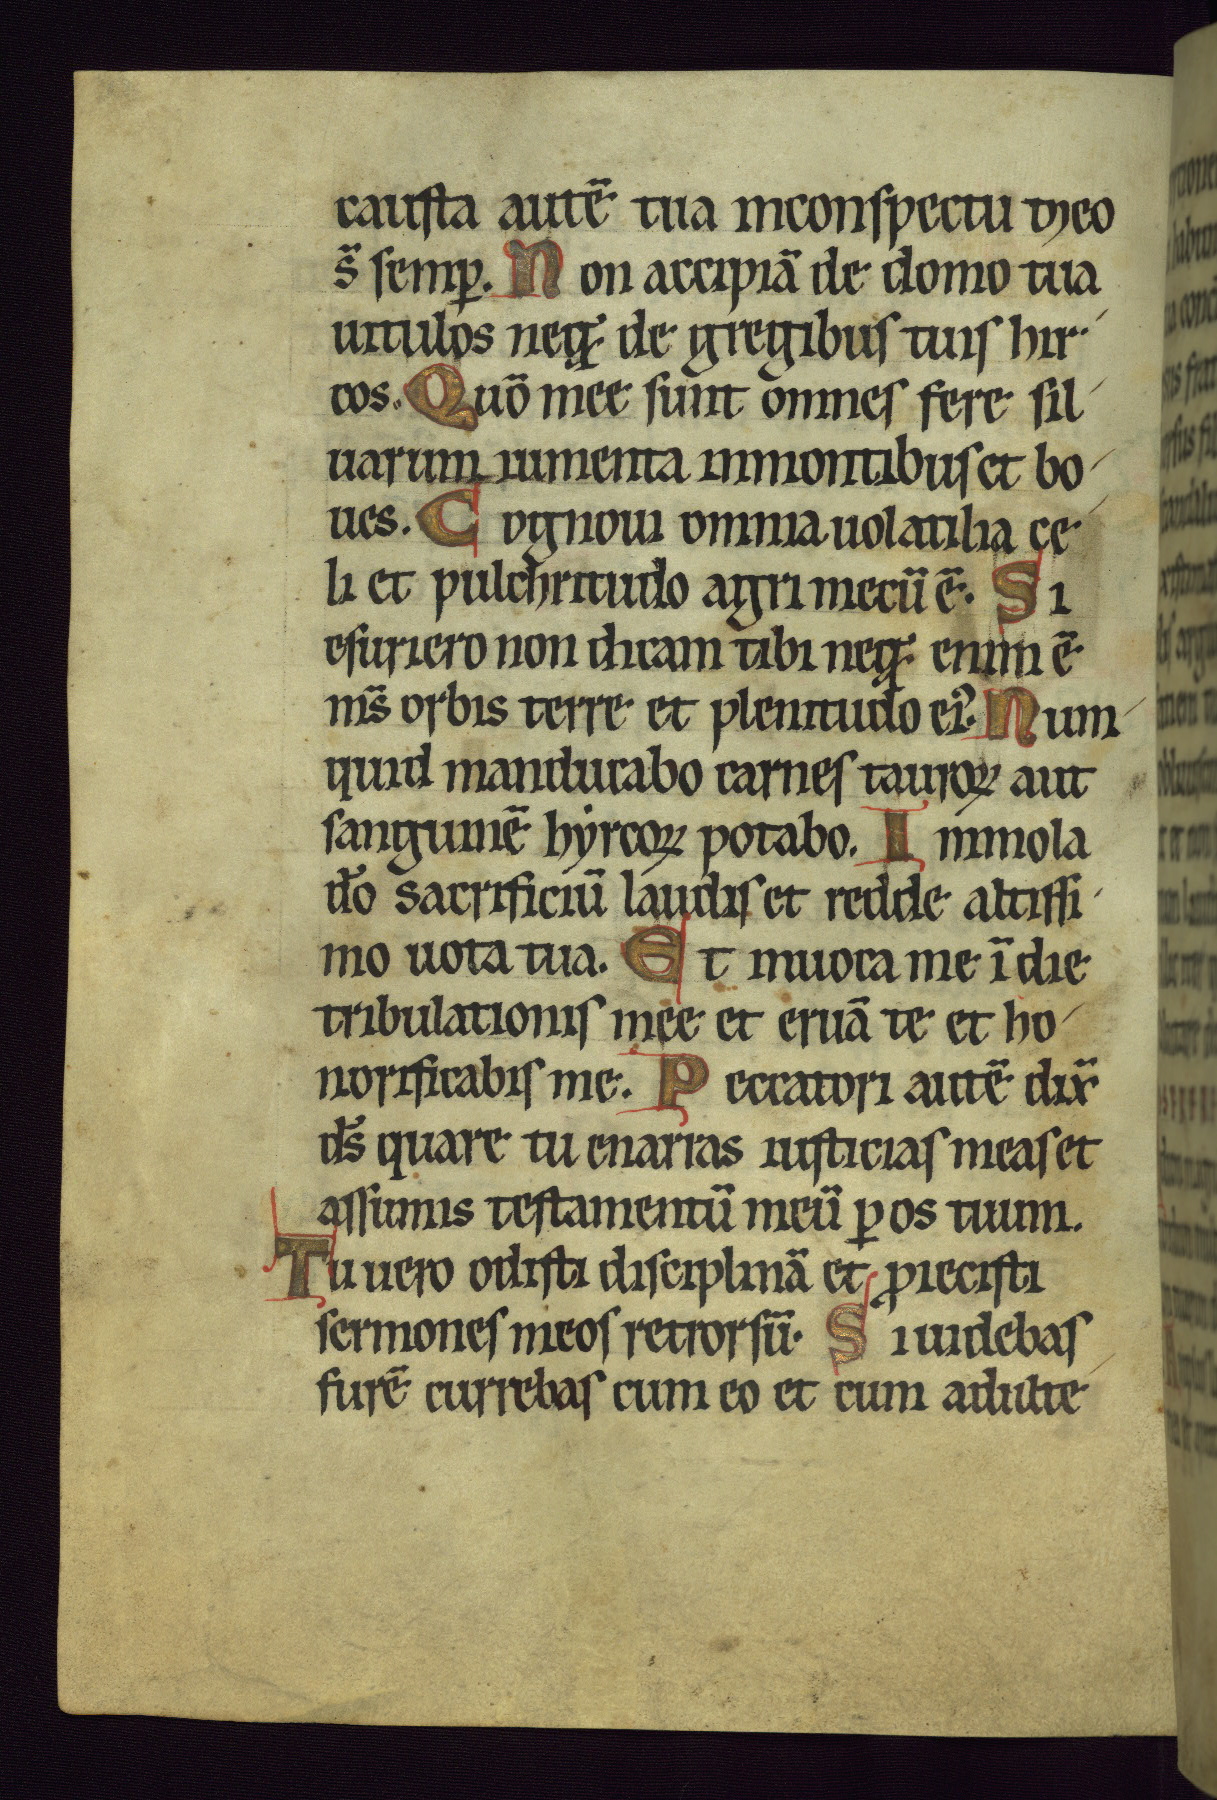 causta autē tua inconspectu meo
s̄ semꝑ. Non accipiā de domo tua
uitulos neqꝫ de gregibus tuis hir
cos. Quō mee sunt omnes fere sil
uarum iumenta inmontibus et bo
ues. Cognoui omnia uolatilia ce
li et pulchritudo agri mecū ē. Si
esuriero non dicam tibi neqꝫ enim ē
ms̄ orbis terre et plenitudo eiꝰ. Num
quid manducabo carnes tauroꝝ aut
sanguinē hẏrcoꝝ potabo. Immola
dō sacrificiū laudis et redde altissi
mo uota tua. Et inuoca me ī die
tribulationis mee et eruā te et ho
norificabis me. Peccatori autē dix̄
ds̄ quare tu enarras iusticias meas et
assumis testamentū meū ꝑ os tuum.
Tu uero odisti disciplinā et ꝓiecisti
sermones meos retrorsū. Si uidebas
furē currebas cum eo et cum adulte